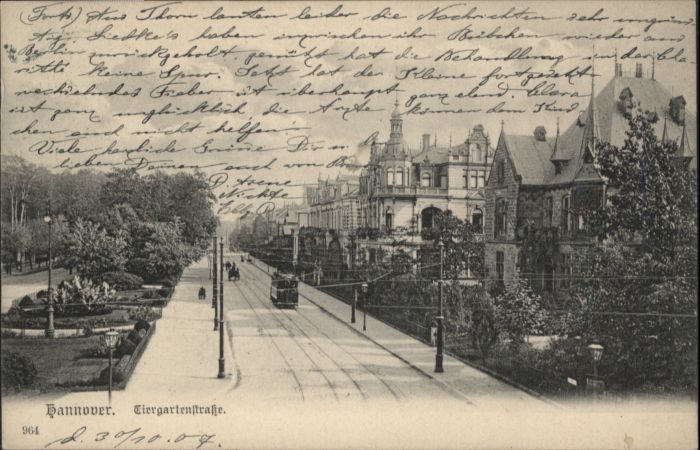 (Forts.) Aus Thorn lauten leider die Nachrichten sehr ungünstig
Liedke's haben inzwischen ihr Bübchen wieder aus
Berlin zurückgeholt, genützt hat die Behandlung in der Cha-
rité keine Spur. Jetzt hat der Kleine fortgesetzt
wechselndes Fieber ist überhaupt ganz elend. Clara
ist ganz unglücklich die Ärzte können dem Kind
chen auch nicht helfen.
Viele herzliche Grüsse Dir u.
lieben Deinen auch von
Hannover. Tiergartenstraße.
964
d. 30/10.07.